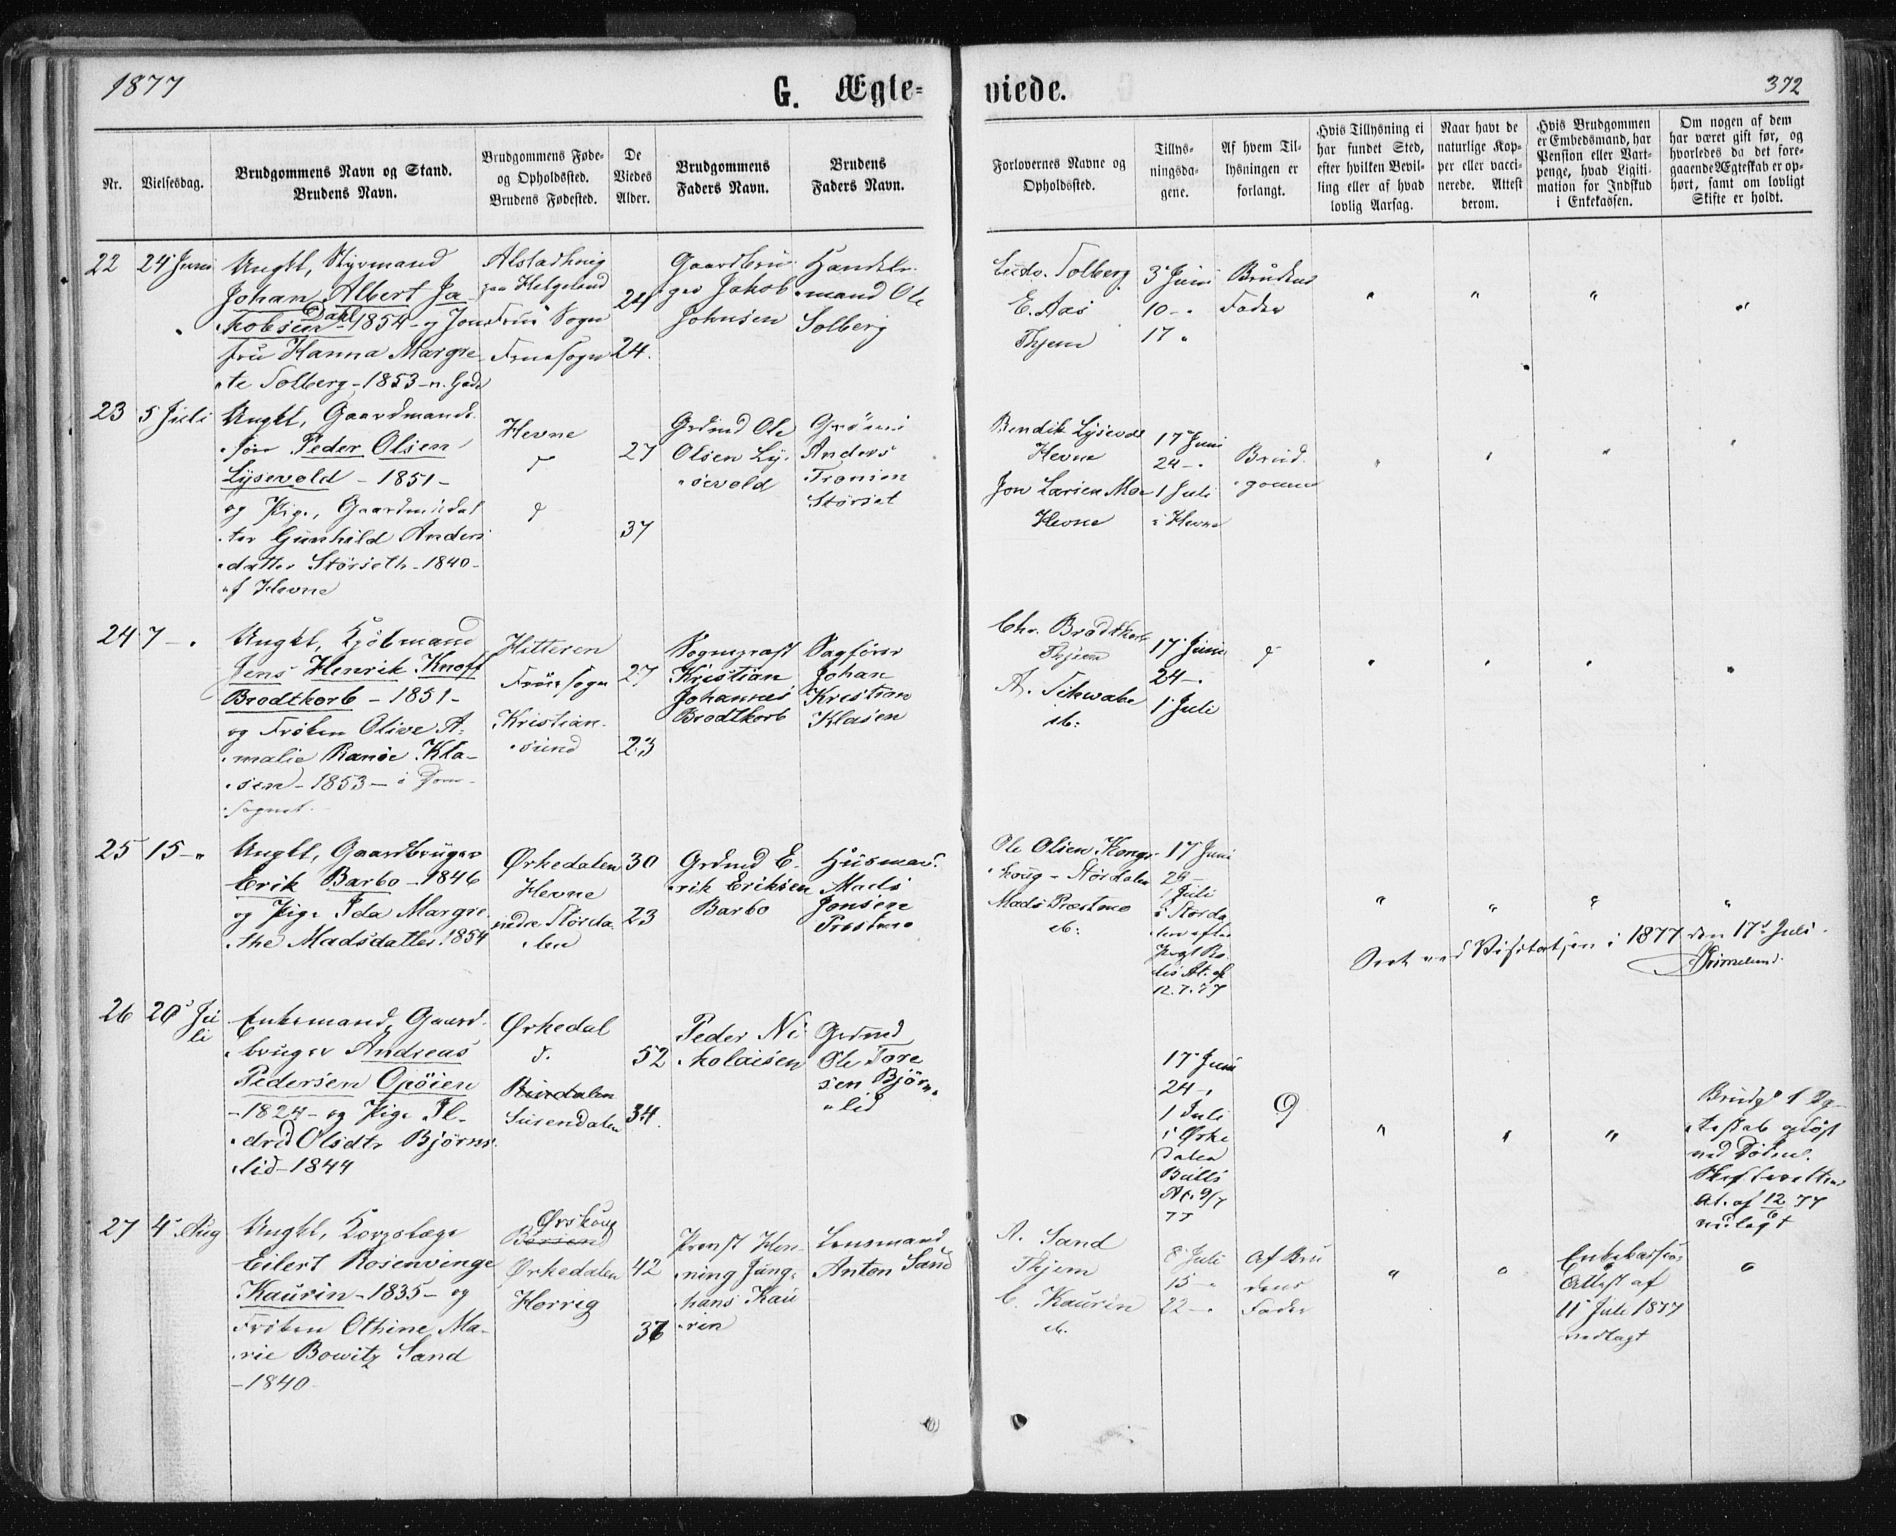 1877
G. Ægte=
viede.
372
Nr.
Vielsesdag.
Brudgommens Navn og Stand.
Brudens Navn.
Brudgommens Føde-
og Opholdssted.
Brudens Fødested.
De
Viedes
Alder.
Brudgommens
Faders Navn.
Brudens
Faders Navn.
Forlovernes Navne og
Opholdssted.
Tillys-
ningsda-
gene.
Af hvem Til-
lysningen er
forlangt.
Hvis Tillysning ei
har fundet Sted,
efter hvilken Bevil-
ling eller af hvad
lovlig Aarsag.
Naar havt de
naturlige Kop-
per eller vacci-
nerede. Attest
derom.
Hvis Brudgommen
er Embedsmand, har
Pension eller Vart-
penge, hvad Ligiti-
mation for Indskud
i Enkekassen.
Om nogen af dem
har været gift før, og
hvorledes da det fore-
gaaende Ægteskab er op-
hørt, samt om lovligt
Skifte er holdt.
22
24 Juni
Ungkl, Styrmand
Johan Albert Ja
kobsen Dahl 1854 - og Jom
fru Hanna Margre
te Solberg - 1853 -
Alstadhoug
paa Helgeland
Frue Sogn
Frue Sogn
24
24.
Gaardbru
ger Jakob
Johnsen
Handels
mand Ole
Solberg
Ludv. Solberg
E. Aas
Thjem
3 Juni
10 - "
17 "
Brudens
Fader
" " " "
23
5 Juli
Ungkl, Gaardmands
søn Peder Olsen
Lysevold - 1851 -
og Pige, Gaardmdsdat
ter Gunhild Anders
datter Størseth - 1840 -
af Hevne
Hevne
27
37
Grdmd Ole
Olsen Ly
sevold
Grdmd
Anders
Tronsen
Størset
Bendik Lysevold
Hevne
Jon Larsen Moe
Hevne
17 Juni
24 - "
1 Juli
i Hevne
Brud
gomme
" " " "
24
7 - "
Ungkl, Kjøbmand
Jens Henrik Knoff
Brodtkorb - 1851 -
og Frøken Olive A
malie Ranøe Kla-
sen - 1853 - i Dom-
Sognet
Hitteren
Frue Sogn
Kristian
sund
27
23
Sogneprest
Kristian
Johannes
Brodtkorb
Sagfører
Johan
Kristian
Klasen
Chr. Brodtkorb
Thjem
A. Schwabe
ib:
17 Juni
24 - "
1 Juli
" " " "
25
15 - "
Ungkl, Gaardbruger
Erik Barbo - 1846
og Pige Ida Margre
the Madsdatter 1854
Ørkedalen
Hevne
nedre Størda
len
30
23
Grdmd E
rik Eriksen
Barbo
Husmand
Mads
Jonsen
Prestmo
Ole Olsen Kongs
houg - Størdalen
Mads Præstmo
ib:
17 Juni
24 -
1 Juli
i Størda
len efter
12.7.77
" " " "
Seet ved Visitatsen i 1877 den 17de Juli.
Grimelund.
26
20 Ju
li
Enkemand, Gaard
bruger Andreas
Pedersen Opøien
- 1824 - og Pige Il
drid Olsdtr Bjørns
lid - 1844
Ørkedal
Surendalen
52
34.
Peder Ni
kolaisen
Grdmd
Ole Tore
sen Bjørns
lid
17 Juni
24 - "
1 Juli
i Ørke
dalen
At. 9/7
77
" " "
Brudg 1 Æg
teskab opløst
ved Døden.
At. af 12/6 77
vedlagt
27
4 Aug
Ungkl, Korpslæge
Eilert Rosenvinge
Kaurin - 1835 - og
Frøken Othine Ma-
rie Bowitz Sand
- 1840
Ørskoug
Børsen
Ørkedalen
Horrig
42
36
Provst Hen
ning Jung
hans Kau
rin
Lensmand
Anton Sand
A. Sand
Thjem
C. Kaurin
ib.
8 Juli
15 - "
22 - "
Af Bru
dens
Fader
" "
Enkekasse
Attest af
11 Juli 1877
vedlagt
"